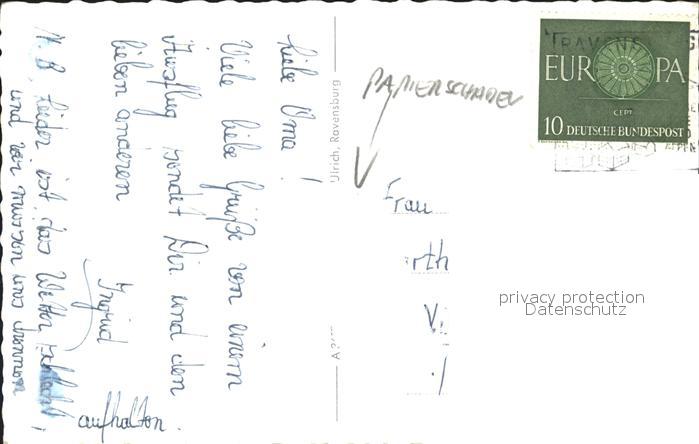 Liebe Oma!
Viele liebe Grüße von einem
Ausflug sendet Dir und den
lieben anderen
Ingrid
N.B. Leider ist das Wetter schlecht,
und wir müssen uns drinnen
aufhalten.
Ulrich, Ravensburg
PAPIERSCHADEN
TRAVEN
EUROPA
CEPT
10 DEUTSCHE BUNDESPOST
Frau
rth
privacy protection
Datenschutz